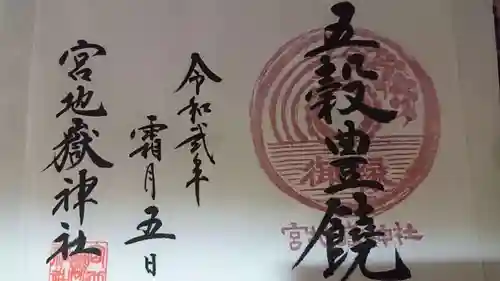 五穀豊饒
宮地嶽神社
令和弐年
霜月五日
宮地嶽神社